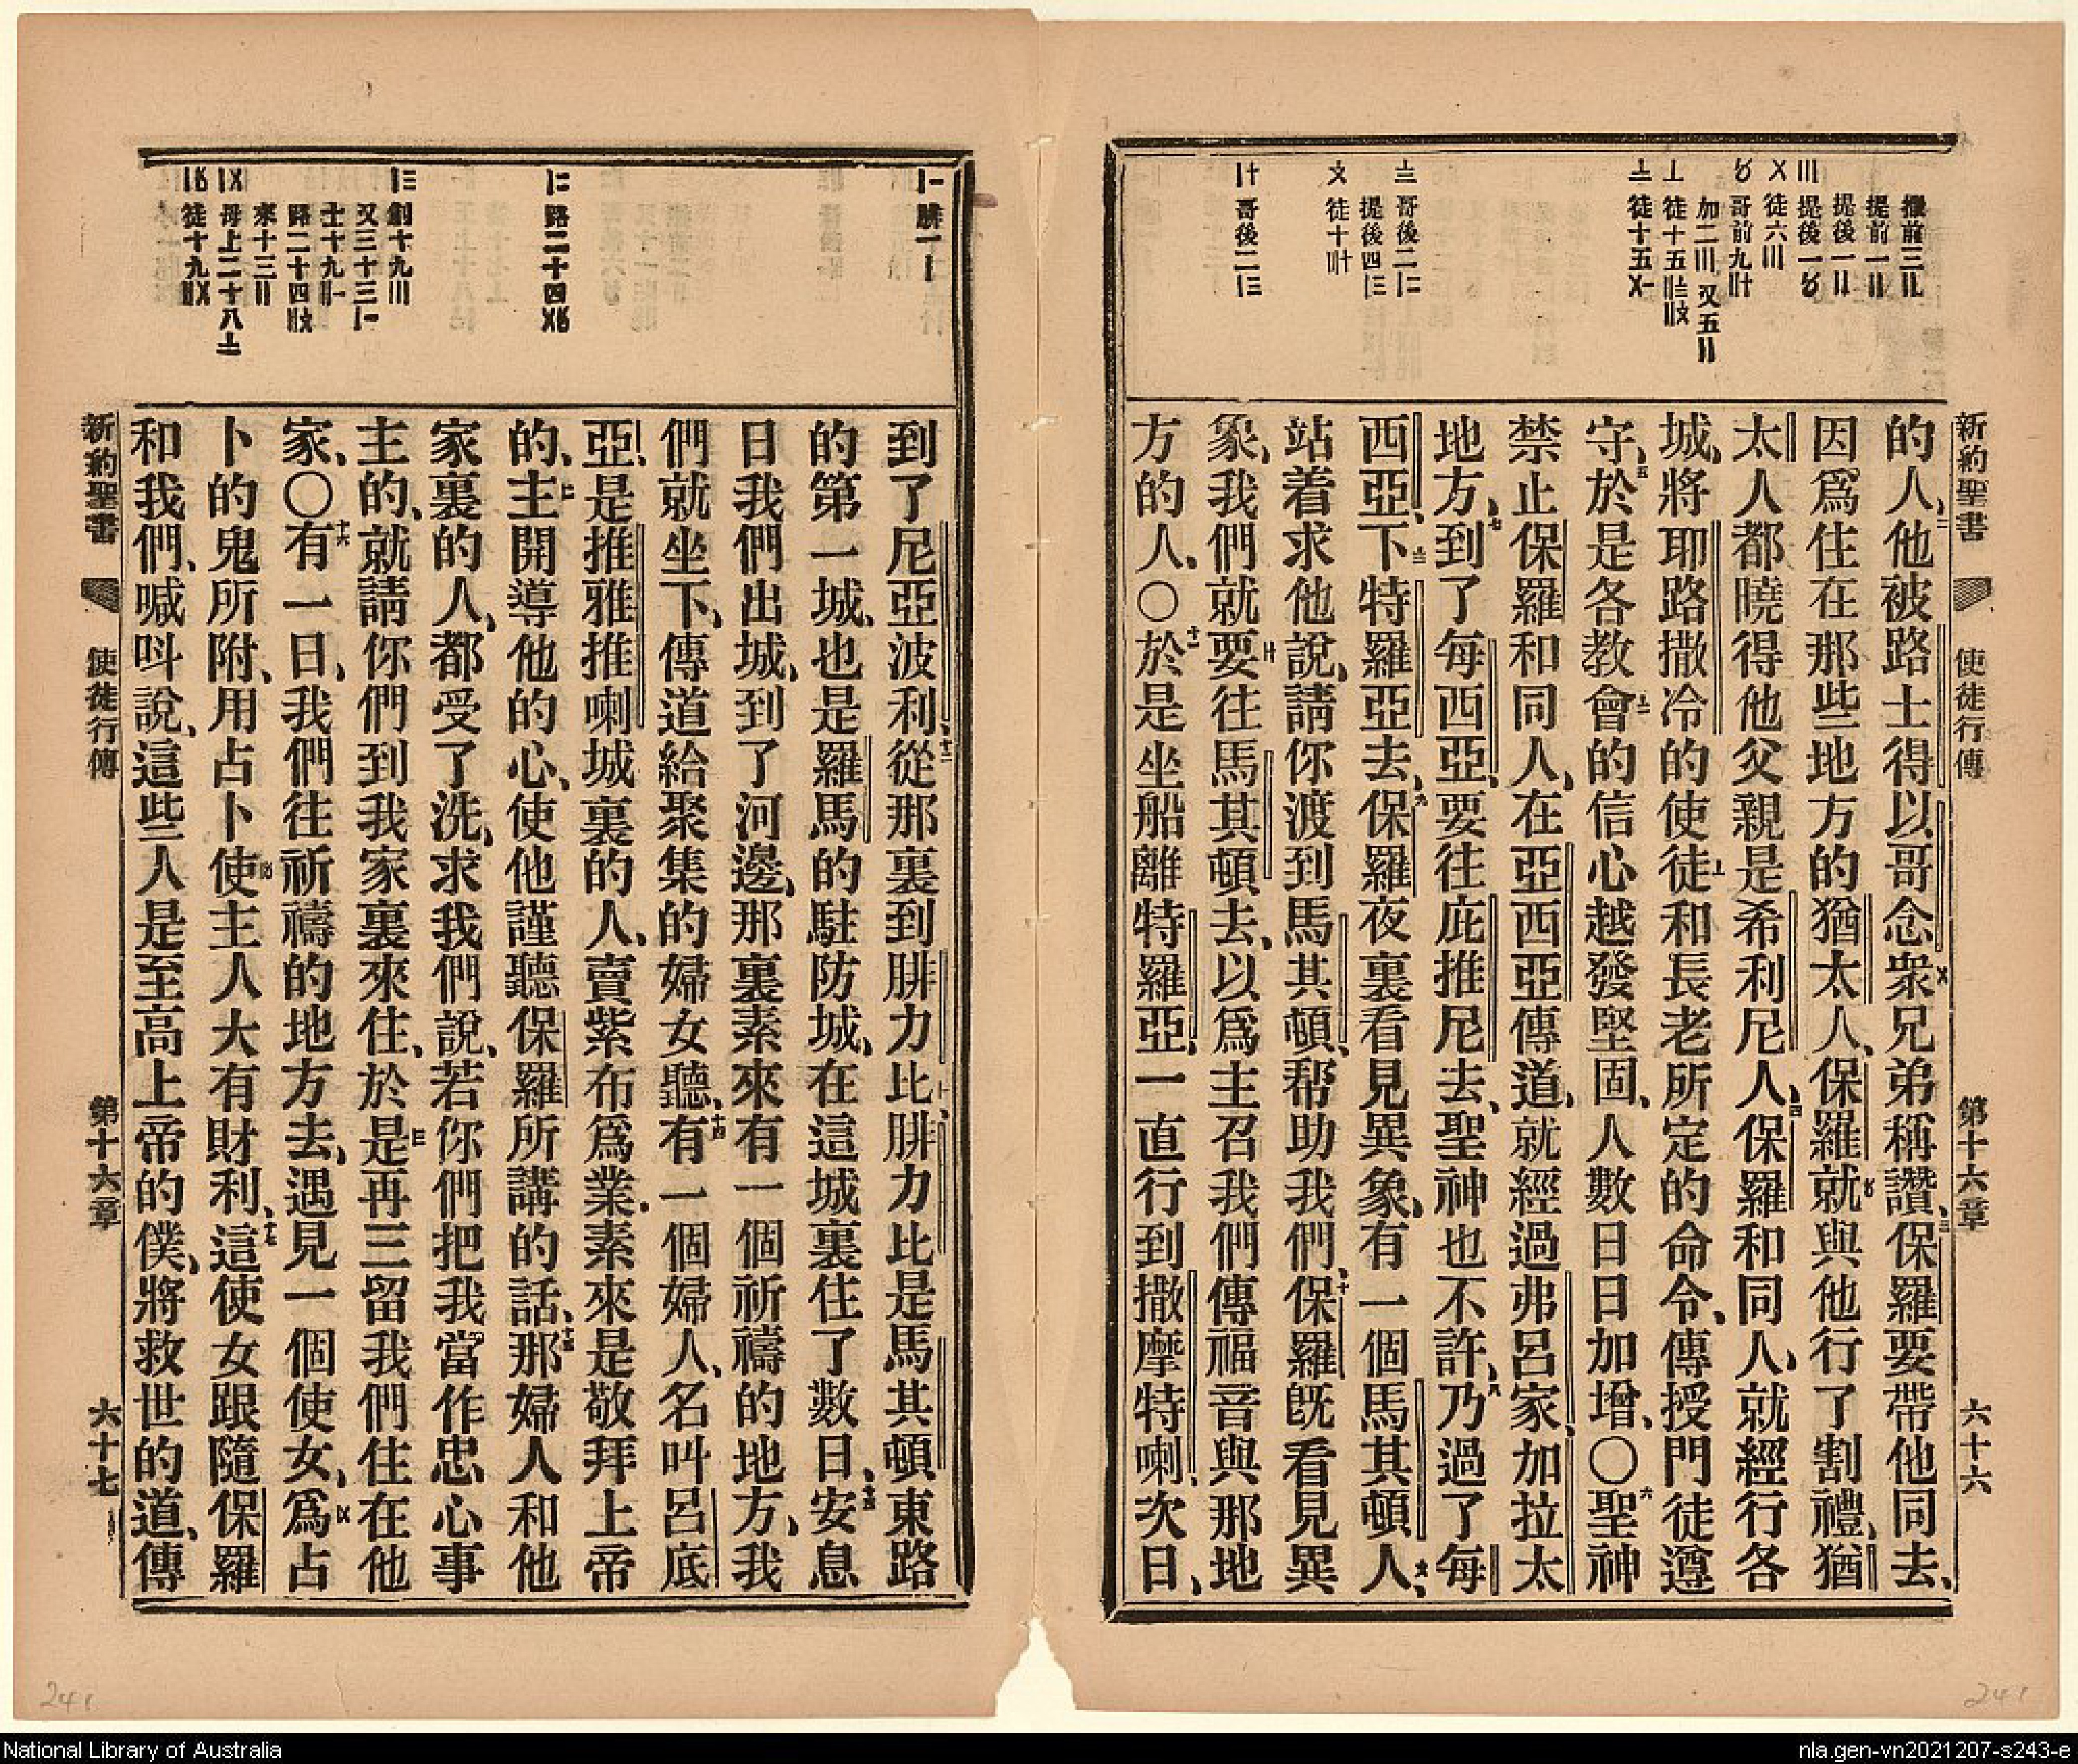 新約聖書 使徒行傳 第十六章 六十六
撒前三〢
提前一〢
提後一〢
〣 提後一〥
〤 徒六〣
〥 哥前九〹
加二〣又五〢
〦 徒十五
〧 徒十五
〨 哥後二
提後四
〩 徒十
哥後二
的人、二他被路士得以哥念衆兄弟稱讚、三保羅要帶他同去、
因爲住在那些地方的猶太人、保羅就與他行了割禮、猶
太人都曉得他父親是希利尼人、四保羅和同人、就經行各
城、將耶路撒冷的使徒和長老所定的命令、傳授門徒遵
守、五於是各教會的信心越發堅固、人數日日加增、〇六聖神
禁止保羅和同人、在亞西亞傳道、就經過弗呂家、加拉太
地方、七到了每西亞、要往庇推尼去、聖神也不許、八乃過了每
西亞、下特羅亞去、九保羅夜裏看見異象、有一個馬其頓人、
站着求他說、請你渡到馬其頓、帮助我們、十保羅旣看見異
象、我們就要往馬其頓去、以爲主召我們傳福音與那地
方的人、〇十一於是坐船離特羅亞、一直行到撒摩特喇、次日、
到了尼亞波利、十二從那裏到腓力比、腓力比是馬其頓東路
的第一城、也是羅馬的駐防城、在這城裏住了數日、十三安息
日我們出城、到了河邊、那裏素來有一個祈禱的地方、我
們就坐下、傳道給聚集的婦女聽、十四有一個婦人、名叫呂底
亞、是推雅推喇城裏的人、賣紫布爲業、素來是敬拜上帝
的、主開導他的心、使他謹聽保羅所講的話、十五那婦人和他
家裏的人、都受了洗、求我們說、若你們把我當作忠心事
主的、就請你們到我家裏來住、於是再三留我們住在他
家、〇十六有一日、我們往祈禱的地方去、遇見一個使女、爲占
卜的鬼所附、用占卜使主人大有財利、十七這使女跟隨保羅
和我們、喊呌說、這些人是至高上帝的僕、將救世的道、傳
腓一
路二十四
創十九〣
又三十三
士十九
路二十四
來十三〢
母上二十八〧
徒十九
新約聖書 使徒行傳 第十六章 六十七
241
241
National Library of Australia
nla.gen-vn2021207-s243-e